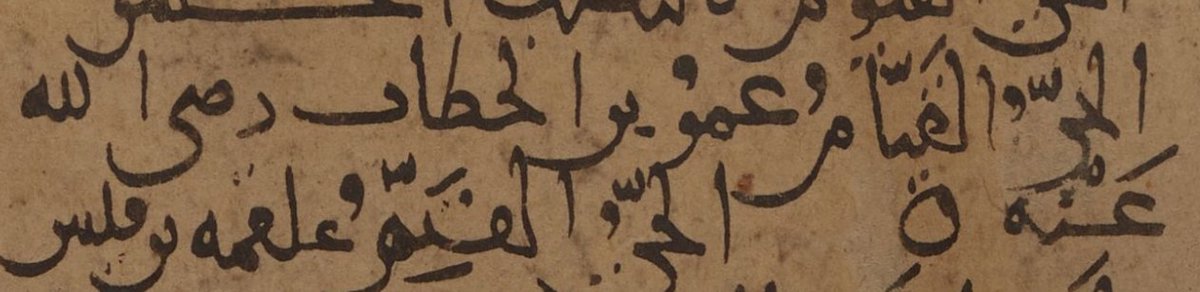 الحيُّ القَيَّامُ عمر بن الخطاب رضى الله
عَنْه ٥ الحيُّ القَيِّمُ علقمه بن قيس